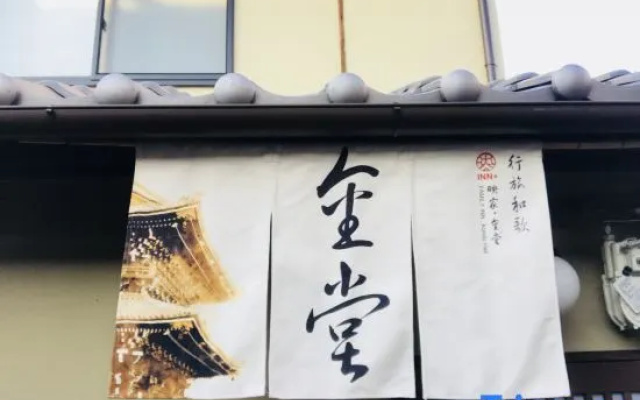 金堂
行旅和歌
INN+
映家·金堂